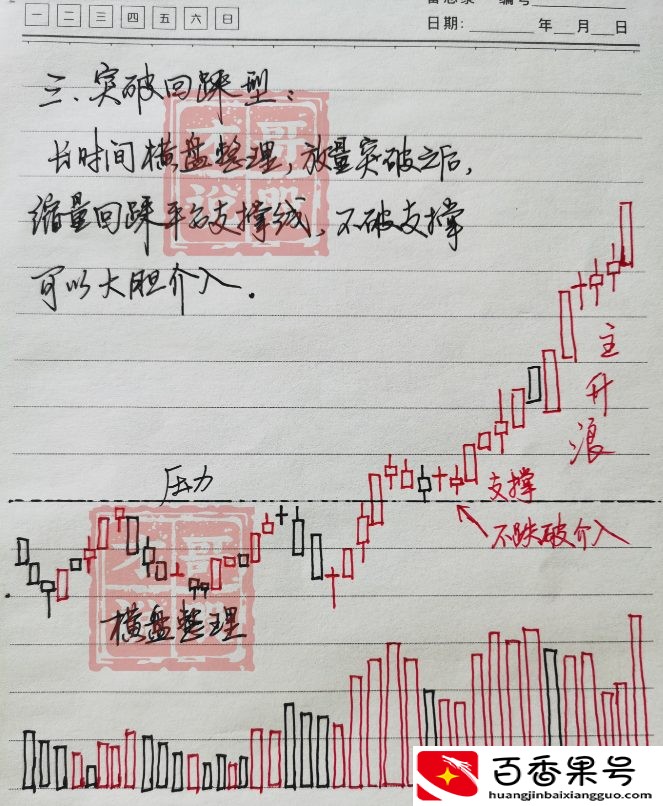 一 二 三 四 五 六 日
备忘录 编号
日期: 年 月 日
三、突破回踩型：
长时间横盘整理，放量突破之后，
缩量回踩平台支撑线，不破支撑
可以大胆介入．
主升浪
压力
支撑
不跌破介入
横盘整理
百香果号
huangjinbaixiangguo.com